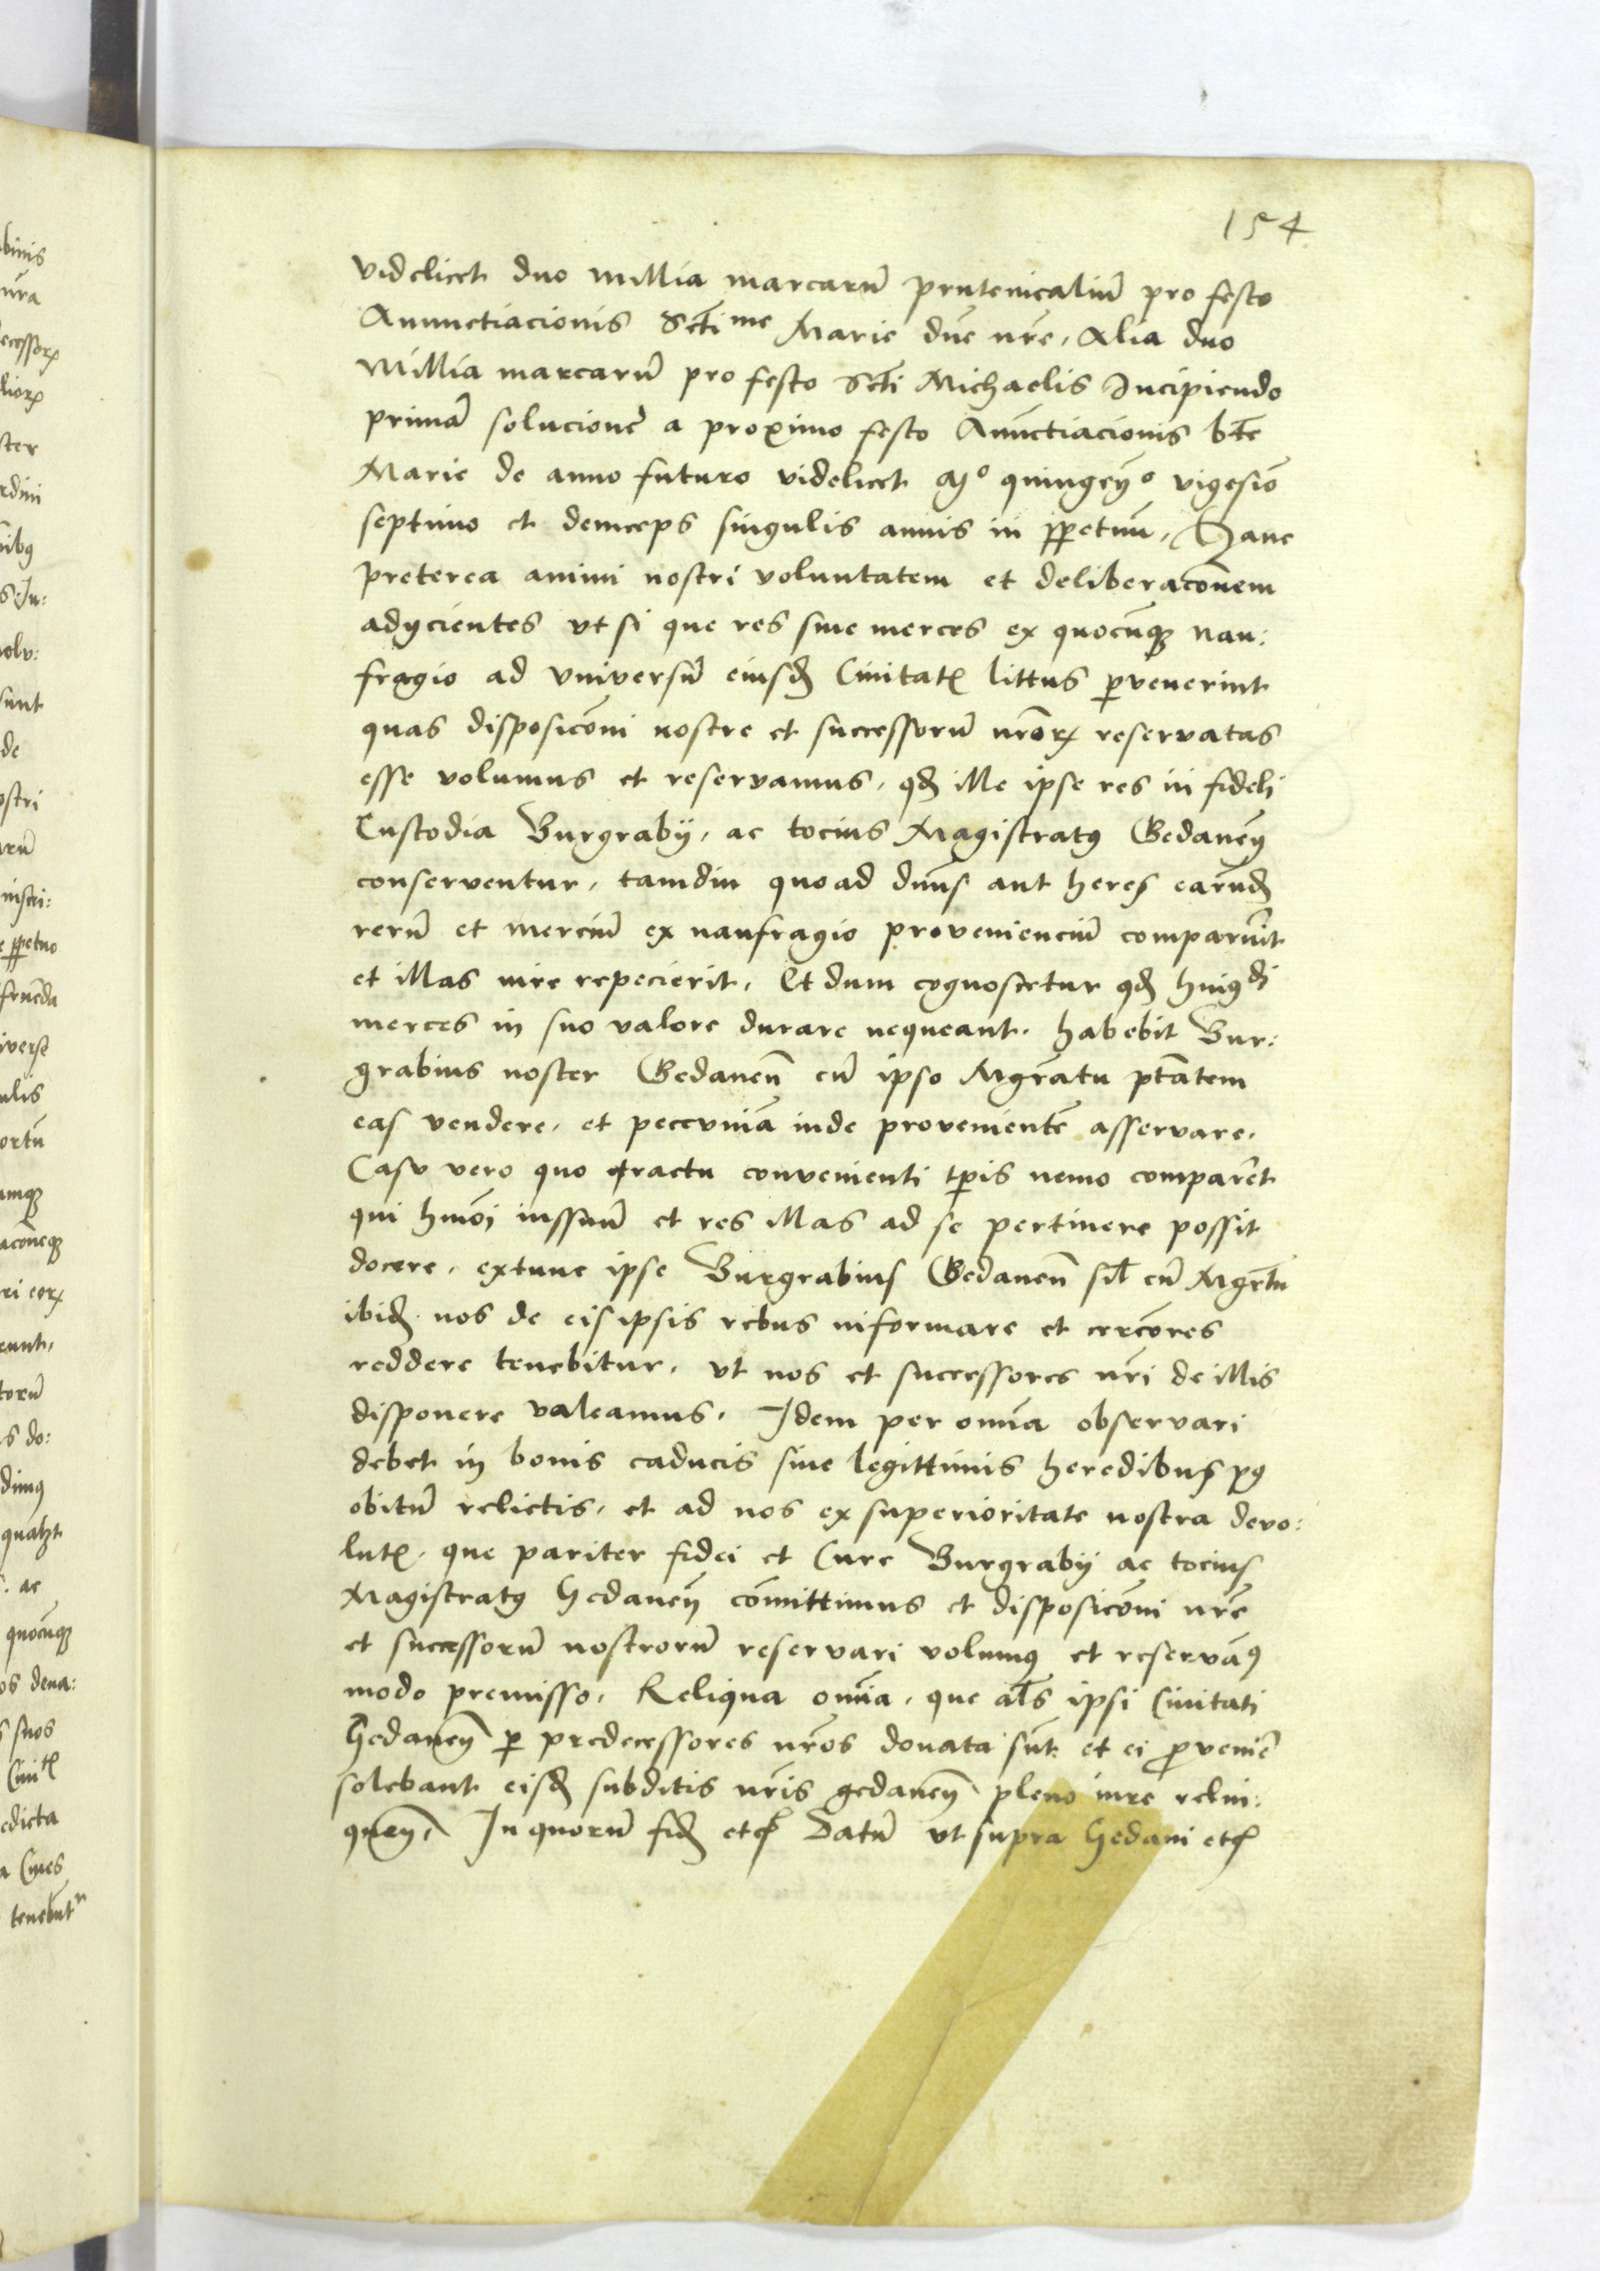 154
videlicet duo millia marcarū prutenicaliū pro festo
Anunctiacionis Sctime Marie dne nre, Alia duo
Millia marcarū pro festo Scti Michaelis Incipiendo
primā solucionē a proximo festo Anūctiacionis bte
Marie de anno futuro videlicet Mo quingēo vigesio
septimo et deinceps singulis annis in ppetuū, Hanc
preterea animi nostri voluntatem et deliberaconem
adycientes vt si que res siue merces ex quocūqȝ nau:
fragio ad vniversū eiusd Ciuitatȝ littus pervenerint
quas disposicōni nostre et successorū nrorȝ reservatas
esse volumus et reservamus, qd ille ipse res in fideli
Custodia Burgrabij, ac tocius Magistratꝯ Gedaneñ
conserventur, tamdiu quoad dnus aut heres earūd
rerū et merciū ex naufragio provenienciū comparuīt
et illas iure repecierit, Et dum cognoscetur qd huiꝯdi
merces in suo valore durare nequeant, habebit Bur:
grabius noster Gedaneñ cū ipso Mgratu ptatem
eas vendere, et peccuniā inde provenientē asservare,
Casv vero quo tractu convenienti tpis nemo comparēt
qui hmoi iussuū et res illas ad se pertinere possit
docere, extunc ipse Burgrabius Gedaneñ sil cū Mgrtu
ibid nos de eis ipsis rebus informare et cercōres
reddere tenebitur, vt nos et successores nri de illis
disponere valeamus, Idem per omnia observari
debet in bonis caducis sine legittimis heredibus pꝯ
obitū relictis, et ad nos ex superioritate nostra devo:
lutȝ, que pariter fidei et Cure Burgrabij ac tocius
Magistratꝯ Gedaneñ cōmittimus et disposicōni nre
et successorū nostrorū reservari volumꝯ et reservamꝯ
modo premisso, Reliqua omīa, que als ipsi Ciuitati
Gedaneñ p predecessores nros donata sūt et ei provenire
solebant eisd subditis nris gedaneñ pleno iure relin:
queñ, In quorū fid etc Datū vt supra Gedani etc